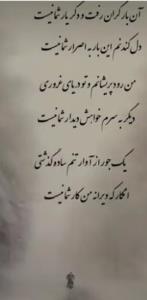 آن بار گران رفت و دگر یار شما نیست
دل کندنم این بار به اصرار شما نیست
من رود پریشانم و تو دریای غروری
دیگر به سرم خواهش دیدار شما نیست
یک جور از آوار تنم ساده گذشتی
انگار که ویرانه من کار شما نیست